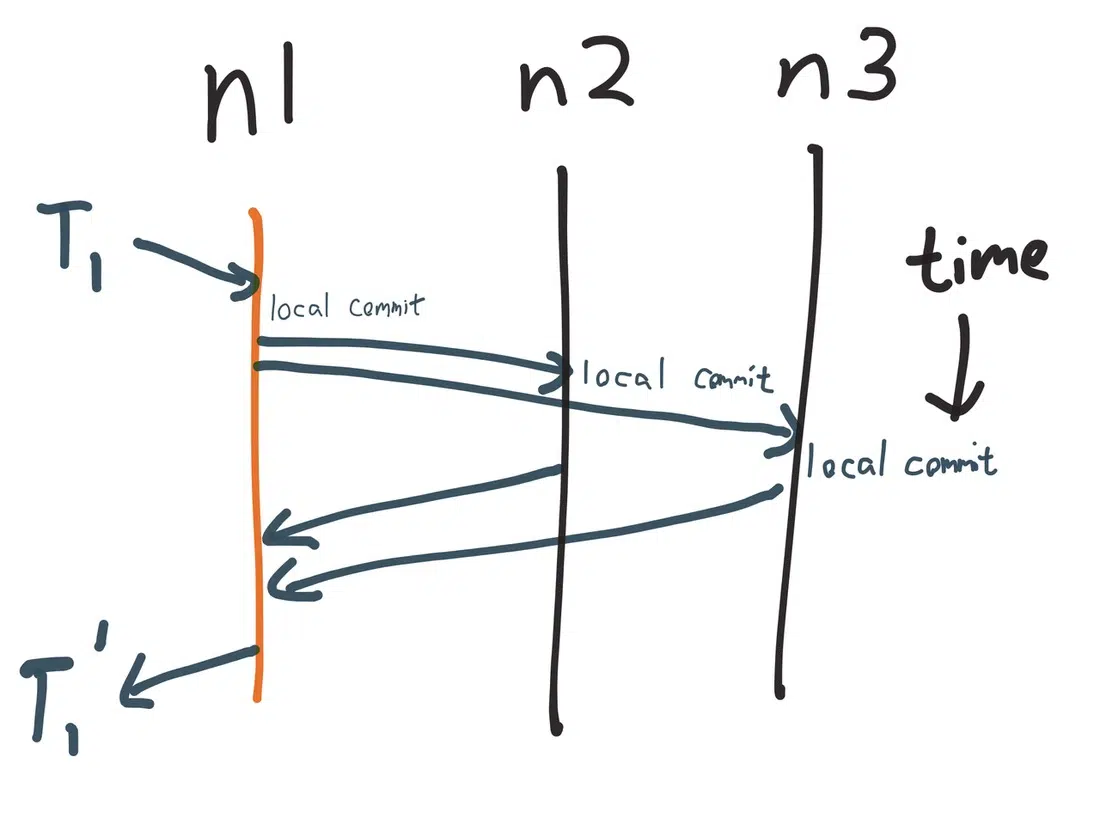 n1
n2
n3
T1
time
local commit
local commit
local commit
T1'